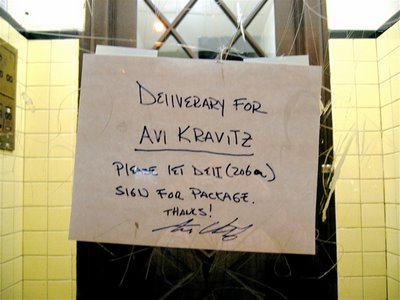 DELIVERARY FOR
AVI KRAVITZ
PLEASE LET DELI (206A)
SIGN FOR PACKAGE.
THANKS!